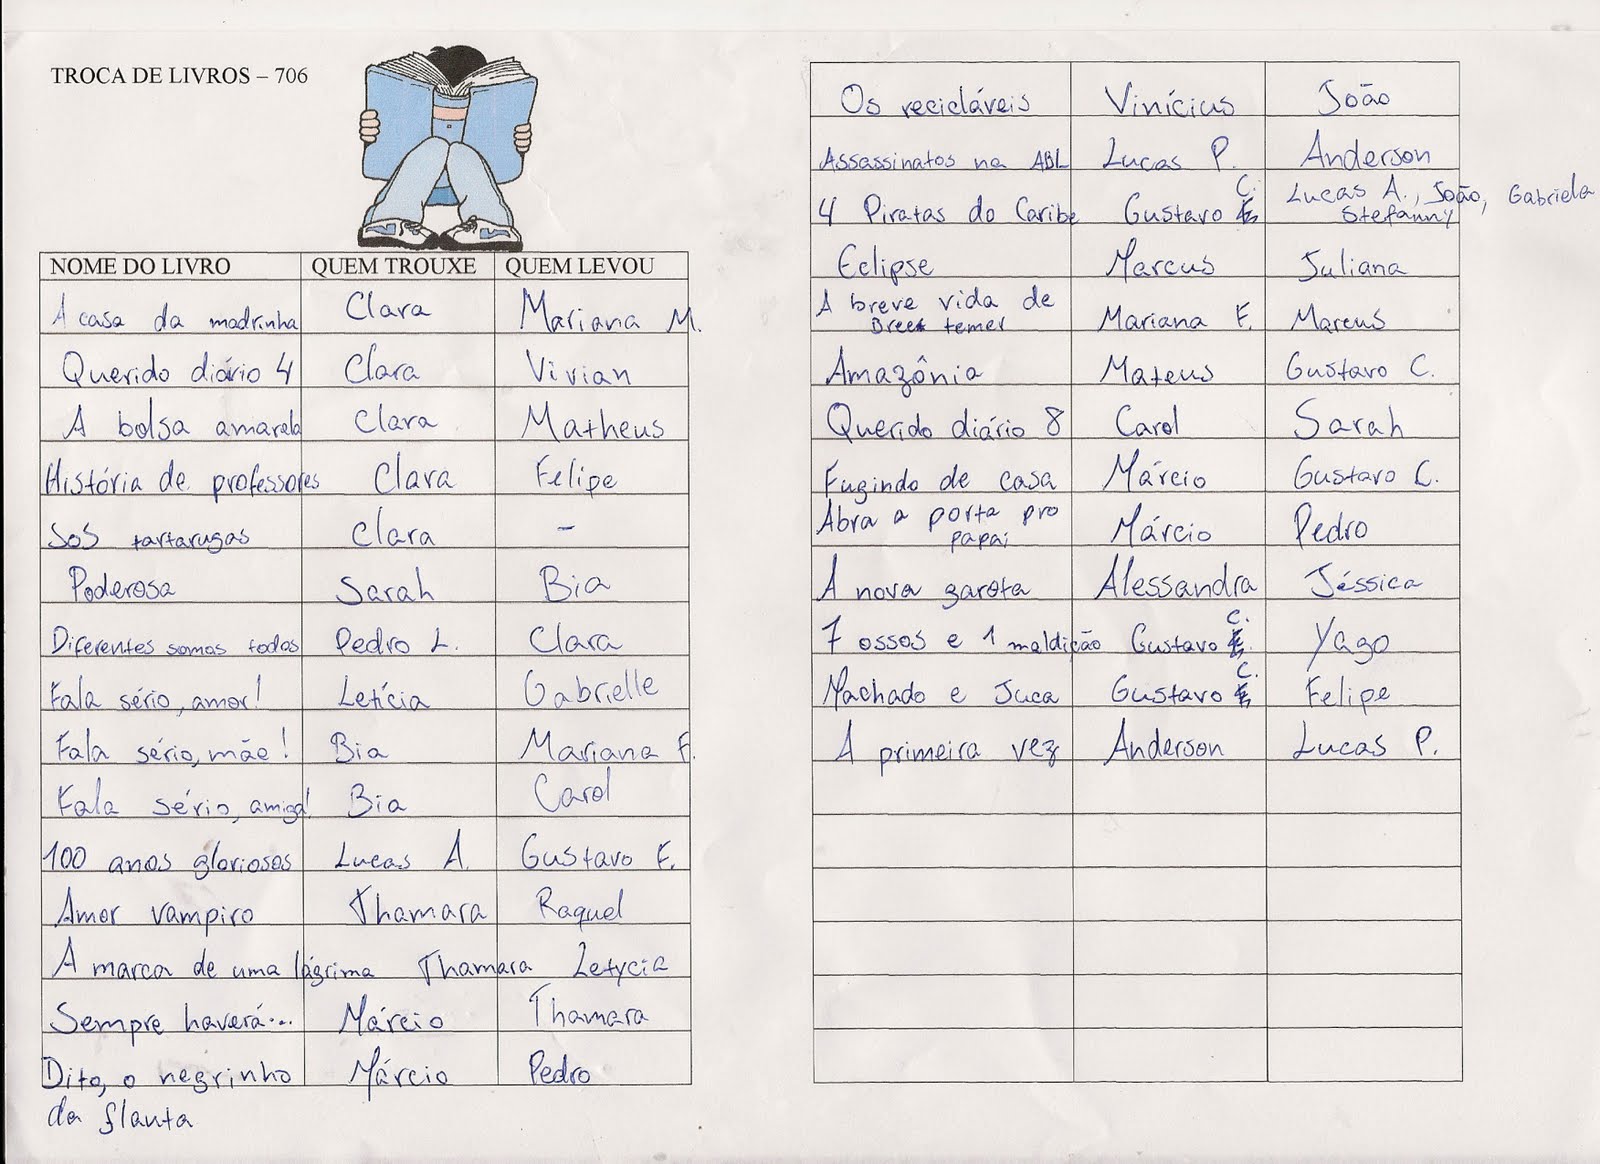 TROCA DE LIVROS – 706
NOME DO LIVRO QUEM TROUXE QUEM LEVOU
A casa da madrinha Clara Mariana M.
Querido diário 4 Clara Vivian
A bolsa amarela Clara Matheus
História de professores Clara Felipe
SOS tartarugas Clara –
Poderosa Sarah Bia
Diferentes somos todos Pedro L. Clara
Fala sério, amor! Letícia Gabrielle
Fala sério, mãe! Bia Mariana F.
Fala sério, amiga! Bia Carol
100 anos gloriosos Lucas A. Gustavo F.
Amor vampiro Thamara Raquel
A marca de uma lágrima Thamara Letycia
Sempre haverá... Márcio Thamara
Dito, o negrinho Márcio Pedro
da flauta
Os recicláveis Vinícius João
Assassinatos na ABL Lucas P. Anderson
4 Piratas do Caribe Gustavo C. Lucas A., João, Gabriela
Stefanny
Eclipse Marcus Juliana
A breve vida de
Bree temer Mariana F. Marcus
Amazônia Mateus Gustavo C.
Querido diário 8 Carol Sarah
Fugindo de casa Márcio Gustavo C.
Abra a porta pro
papai Márcio Pedro
A nova garota Alessandra Jéssica
7 ossos e 1 maldição Gustavo C. Yago
Machado e Juca Gustavo C. Felipe
A primeira vez Anderson Lucas P.